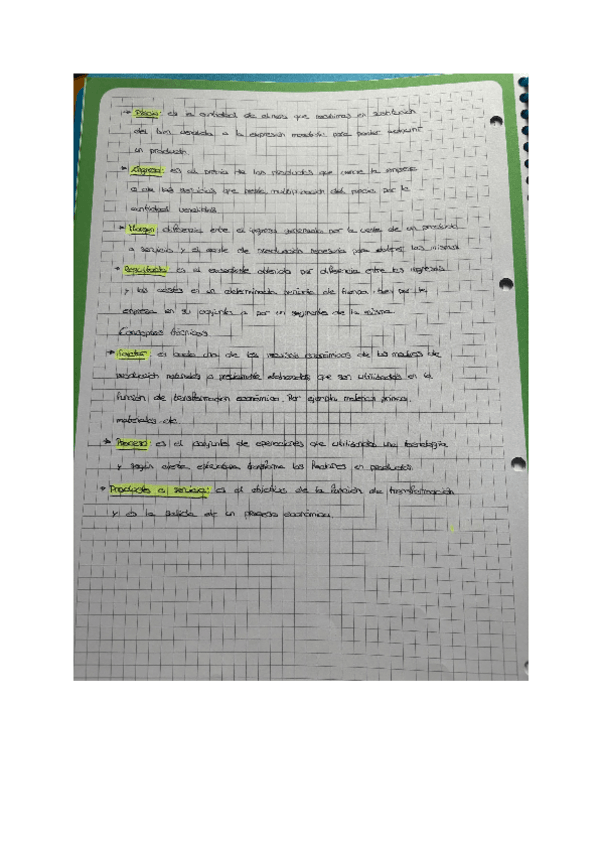 → Precio: es la cantidad de dinero que recibimos en sustitución
del bien debido a la expresión monetaria para poder
un producto.
→ Ingreso: es el precio de los productos que vende la empresa
o de los servicios que presta multiplicación del precio por la
cantidad vendida
→ Margen: diferencia entre el ingreso por la venta de un producto
o servicio y el coste de producción necesario para obtener los mismos
→ Resultado: es el excedente obtenido por diferencia entre los ingresos
y los costes en un determinado periodo de tiempo, bien por la
empresa en su conjunto o por un segmento de la misma.
Conceptos técnicos
→ es de los recursos económicos de los medios de
producción naturales o elaborados que son utilizados en la
función de transformación económica. Por ejemplo materias primas,
materiales etc.
→ Proceso: es el conjunto de operaciones que utilizando una tecnología
y según transforma los factores en productos.
→ Productos o servicios: es el objetivo de la función de transformación
y es la salida de un proceso económico.